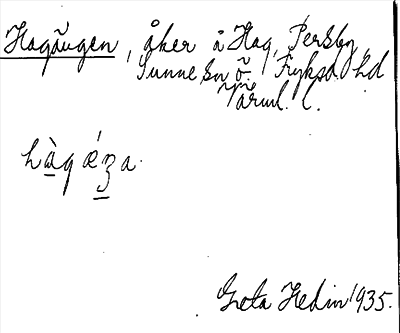 Hagängen, åker å Hag, Persby,
Sunne sn ö. Fryksd. hd
Värml. l.
hàqǽza.
Greta Hedin 1935.